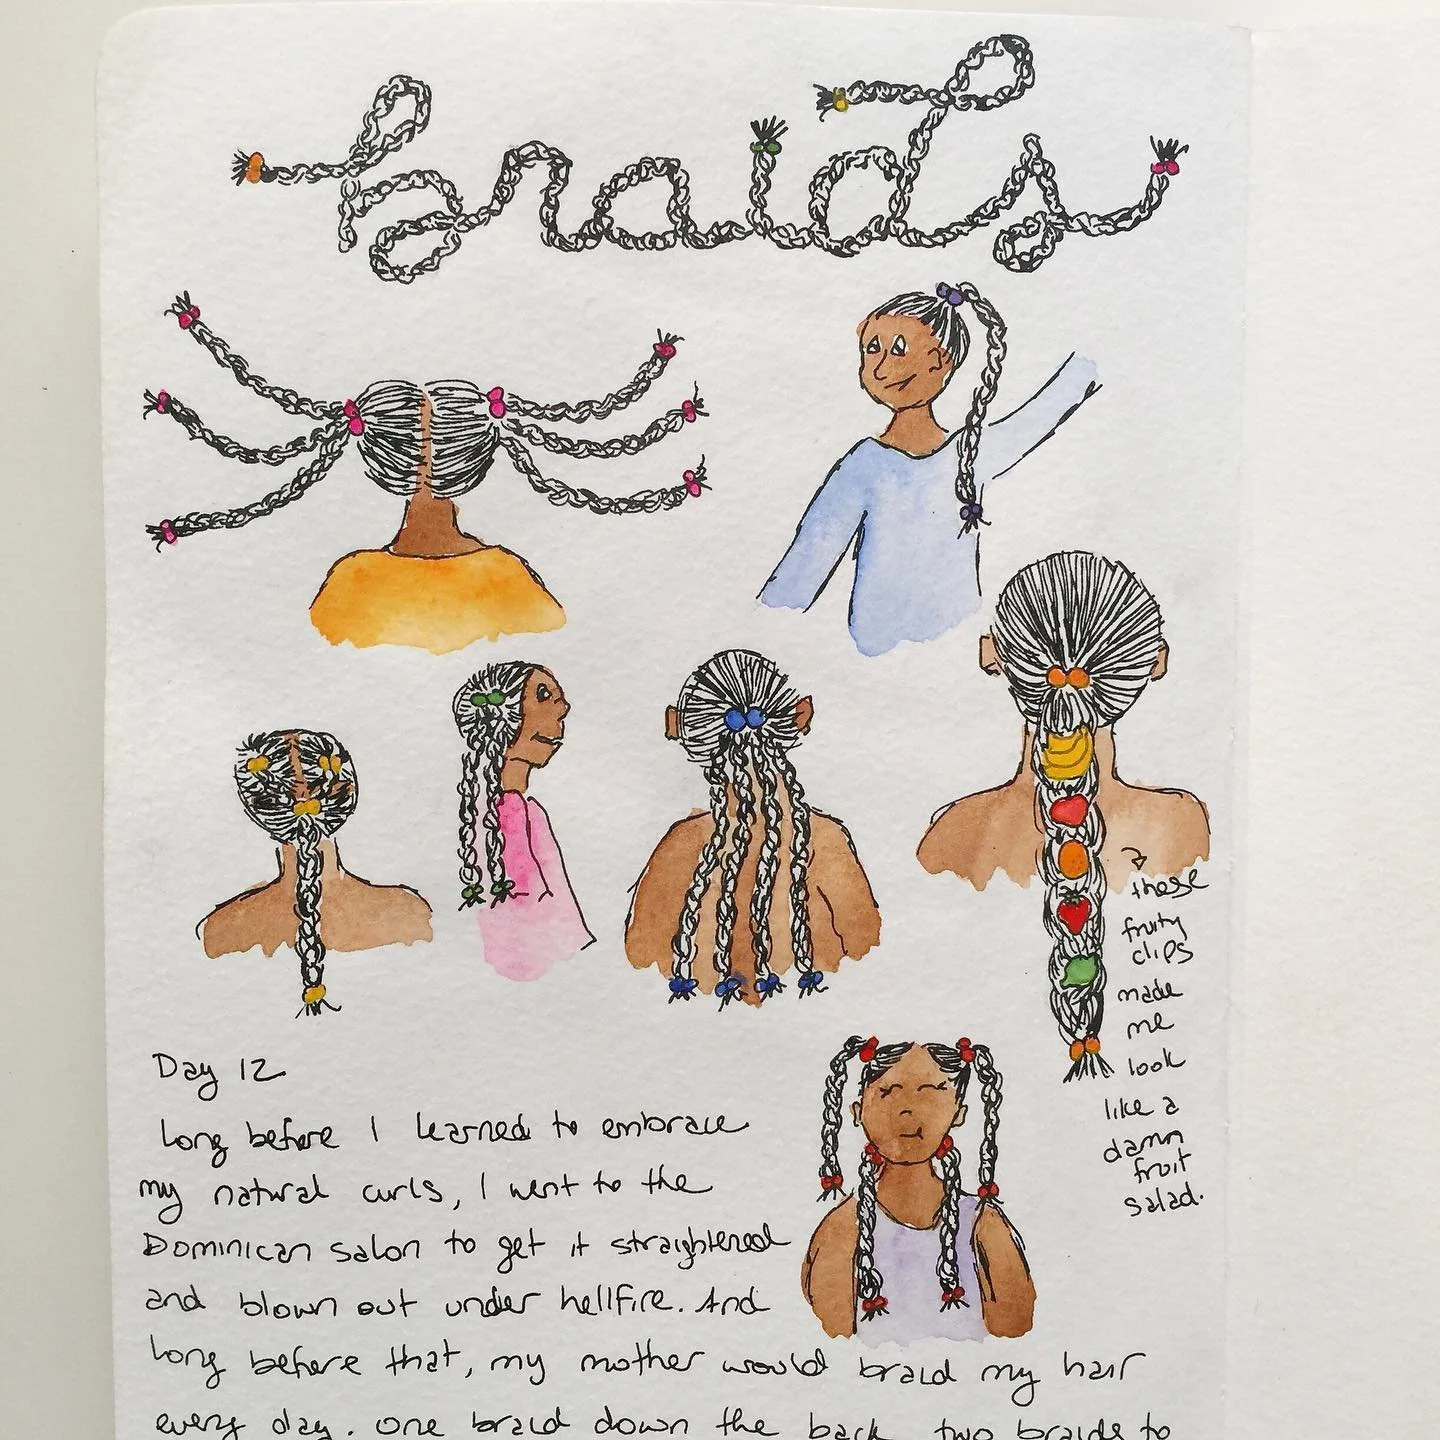 braids
these
fruity
clips
made
me
look
like a
damn
fruit
salad.
Day 12
Long before I learned to embrace
my natural curls, I went to the
Dominican salon to get it straightened
and blown out under hellfire. And
long before that, my mother would braid my hair
every day. One braid down the back, two braids to